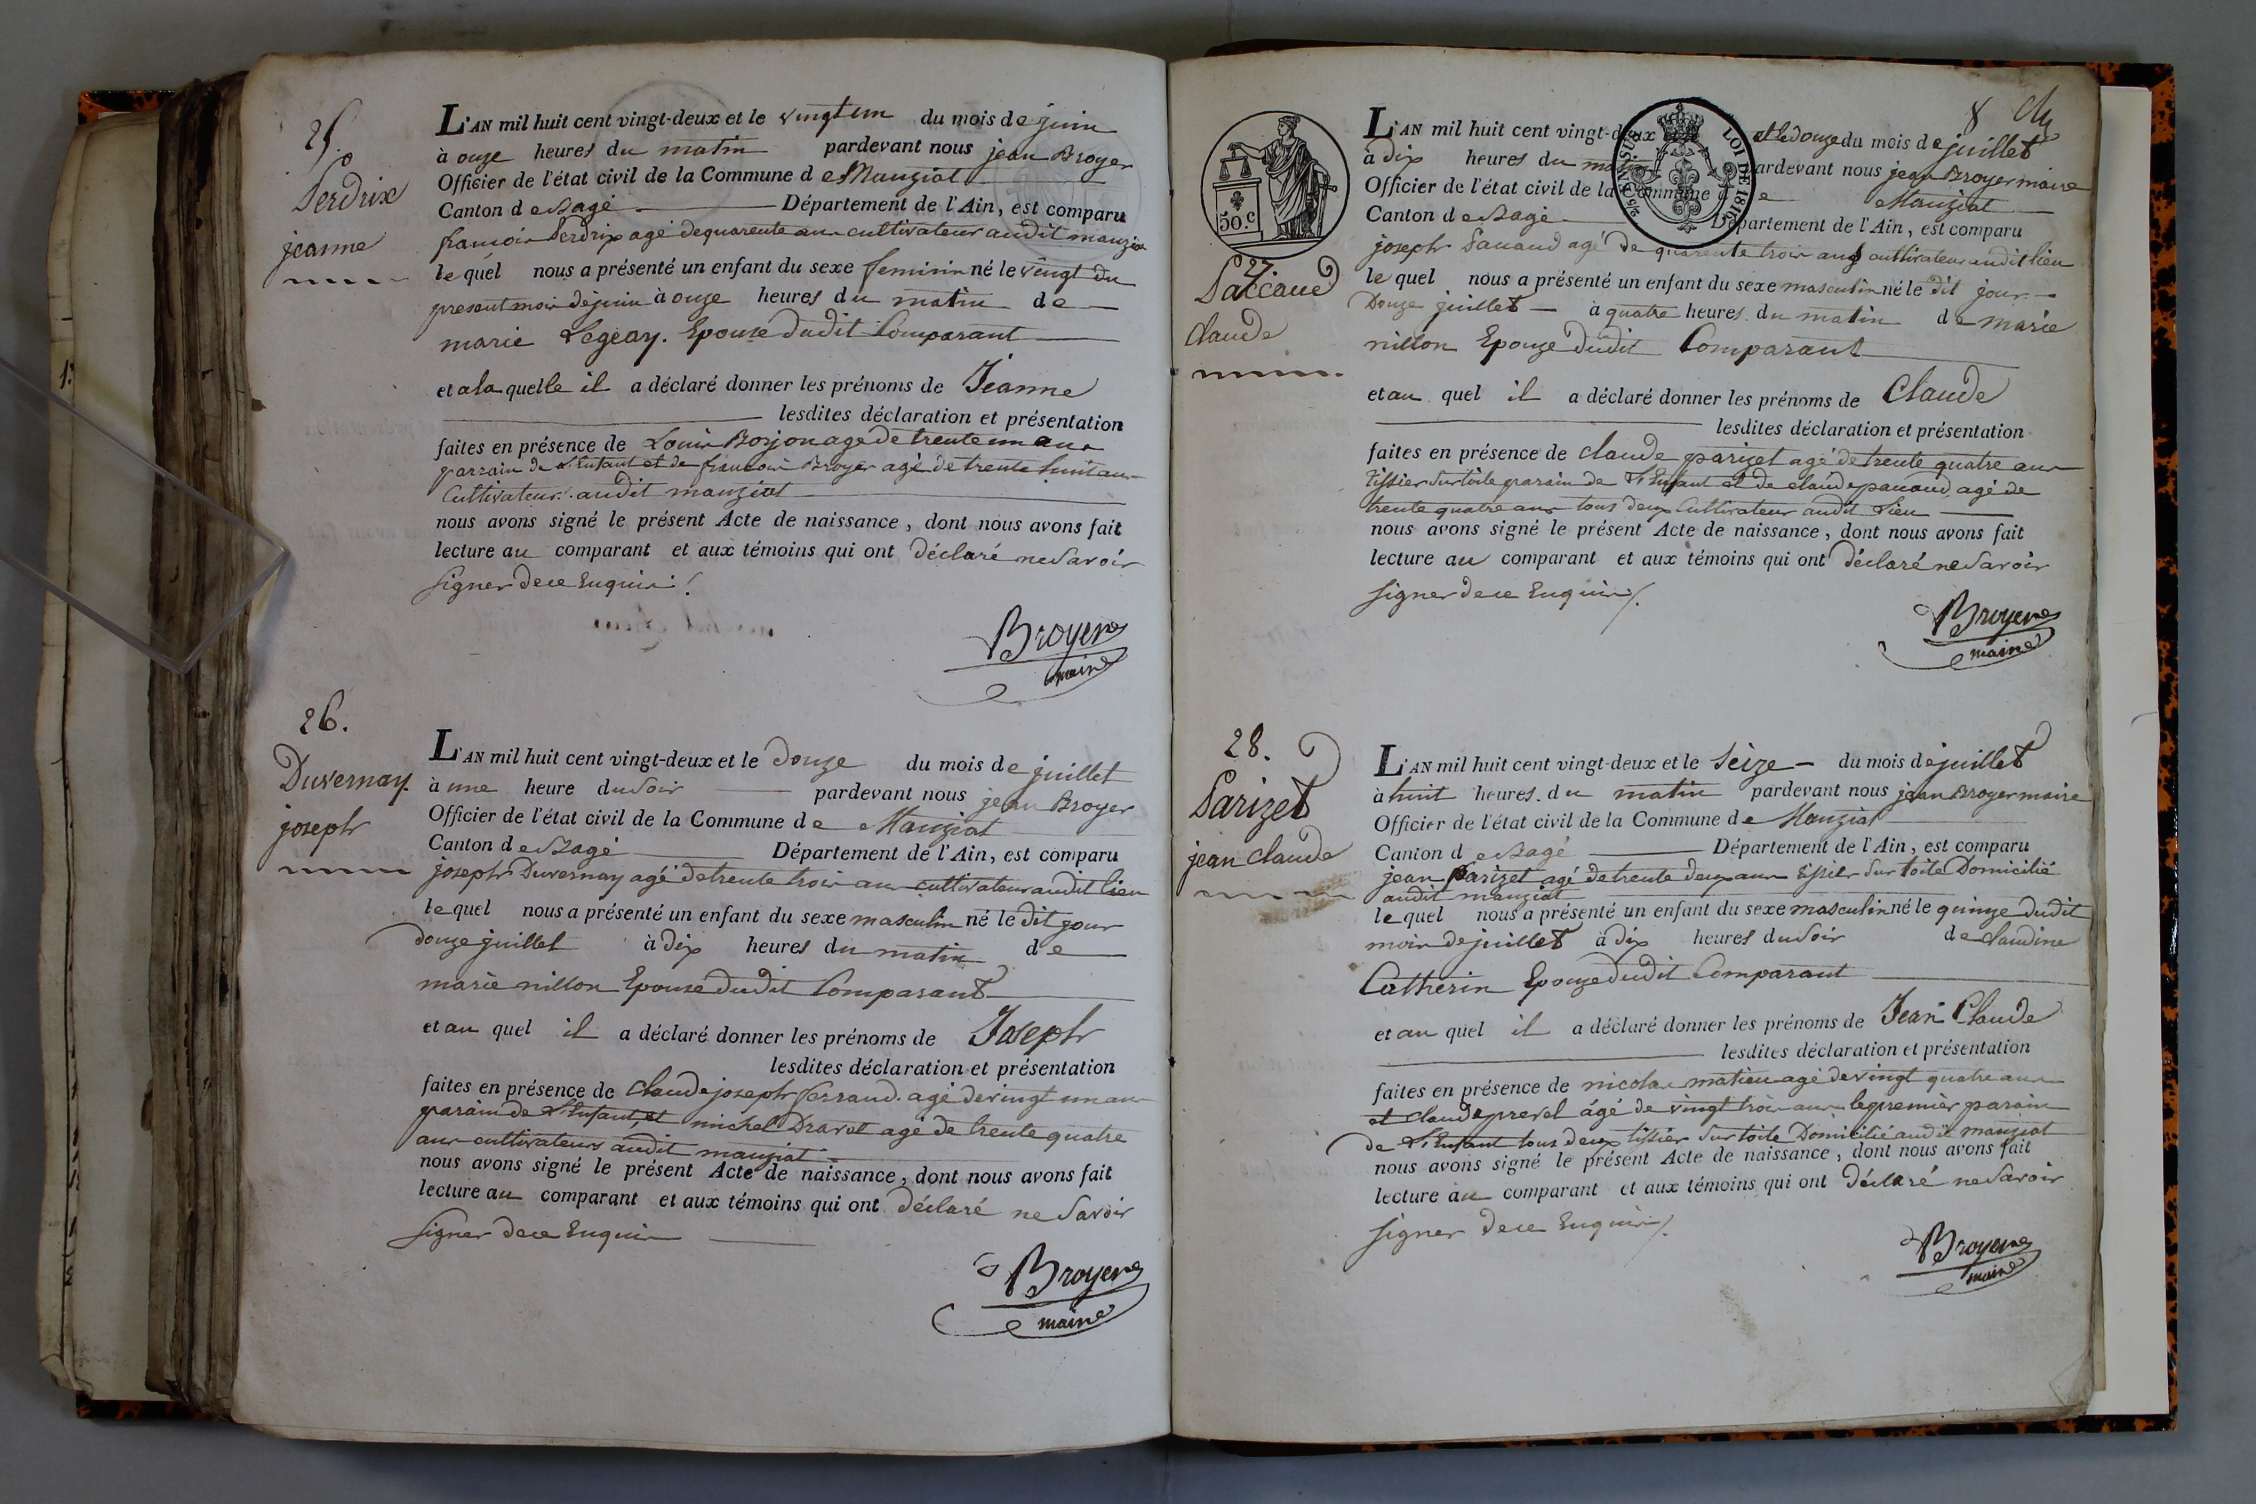 25.
Perdrix
jeanne
L'AN mil huit cent vingt-deux et le vingt un du mois de juin
à onze heures du matin pardevant nous jean Broyer
Officier de l'état civil de la Commune de Manziat
Canton de Bagé Département de l'Ain, est comparu
françois Perdrix agé de quarente ans cultivateur audit manziat
le quel nous a présenté un enfant du sexe feminin né le vingt du
present mois de juin à onze heures du matin de
marie Legeay. Epouse dudit Comparant
et a la quelle il a déclaré donner les prénoms de Jeanne
lesdites déclaration et présentation
faites en présence de Louis Borjon agé de trente un ans
parrain de l'Enfant et de françois Broyer agé de trente huit ans
Cultivateurs audit manziat
nous avons signé le présent Acte de naissance, dont nous avons fait
lecture au comparant et aux témoins qui ont déclaré ne Savoir
signer de ce Enquis ./.
Broyer
maire
26.
Duvernay.
joseph
L'AN mil huit cent vingt-deux et le douze du mois de juillet
à une heure du Soir pardevant nous jean Broyer
Officier de l'état civil de la Commune de Manziat
Canton de Bagé Département de l'Ain, est comparu
joseph Duvernay agé de trente trois ans cultivateur audit lieu
le quel nous a présenté un enfant du sexe masculin né le dit jour
douze juillet à dix heures du matin de
marie nillon Epouse dudit Comparant
et au quel il a déclaré donner les prénoms de Joseph
lesdites déclaration et présentation
faites en présence de Claude joseph ferraud. agé de vingt un ans
parain de l'Enfant, et michel Dravet agé de trente quatre
ans cultivateurs audit manziat
nous avons signé le présent Acte de naissance, dont nous avons fait
lecture au comparant et aux témoins qui ont déclaré ne Savoir
signer de ce Enquis
Broyer
maire
8
50.c
2/5 EN SUS
LOI DE 1816
27.
Paccaud
Claude
L'AN mil huit cent vingt-deux et le douze du mois de juillet
à dix heures du matin pardevant nous jean Broyer maire
Officier de l'état civil de la Commune de Manziat
Canton de Bagé Département de l'Ain, est comparu
joseph Pacaud agé de quarente trois ans cultivateur audit lieu
le quel nous a présenté un enfant du sexe masculin né le dit jour
Douze juillet à quatre heures du matin de marie
nillon Epouze dudit Comparant
et au quel il a déclaré donner les prénoms de Claude
lesdites déclaration et présentation
faites en présence de claude parizet agé de trente quatre ans
tissier sur toile parain de l'Enfant et de claude pacaud agé de
trente quatre ans tous deux Cultivateur audit Lieu
nous avons signé le présent Acte de naissance, dont nous avons fait
lecture au comparant et aux témoins qui ont déclaré ne Savoir
signer de ce Enquis ./.
Broyer
maire
28.
Parizet
jean Claude
L'AN mil huit cent vingt-deux et le Seize du mois de juillet
à huit heures du matin pardevant nous jean Broyer maire
Officier de l'état civil de la Commune de Manziat
Canton de Bagé Département de l'Ain, est comparu
jean parizet agé de trente deux ans tissier Sur toile Domicilié
audit manziat
le quel nous a présenté un enfant du sexe masculin né le quinze dudit
mois de juillet à dix heures du Soir de Claudine
Catherin Epouze dudit Comparant
et au quel il a déclaré donner les prénoms de Jean Claude
lesdites déclaration et présentation
faites en présence de nicolas matieu agé de vingt quatre ans
et Claude prevel agé de vingt trois ans le premier parain
de l'Enfant tous deux tissier Sur toile Domicilié audit manziat
nous avons signé le présent Acte de naissance, dont nous avons fait
lecture au comparant et aux témoins qui ont déclaré ne Savoir
signer de ce Enquis ./.
Broyer
maire